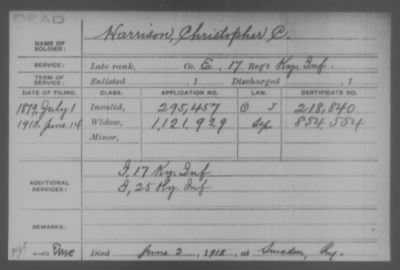 DEAD
NAME OF SOLDIER: Harrison, Christopher C.
SERVICE: Late rank, Co. E, 17 Reg't Ky. Inf.
TERM OF SERVICE: Enlisted , 1 Discharged , 1
DATE OF FILING. CLASS. APPLICATION NO. LAW. CERTIFICATE NO.
1879, July 1 Invalid, 295,457 J 218,840
1915, June 14 Widow, 1,121,929 854,554
Minor,
ADDITIONAL SERVICES: I, 17 Ky. Inf
I, 25 Ky. Inf
REMARKS:
Died June 2, 1915, at Sweeden, Ky.